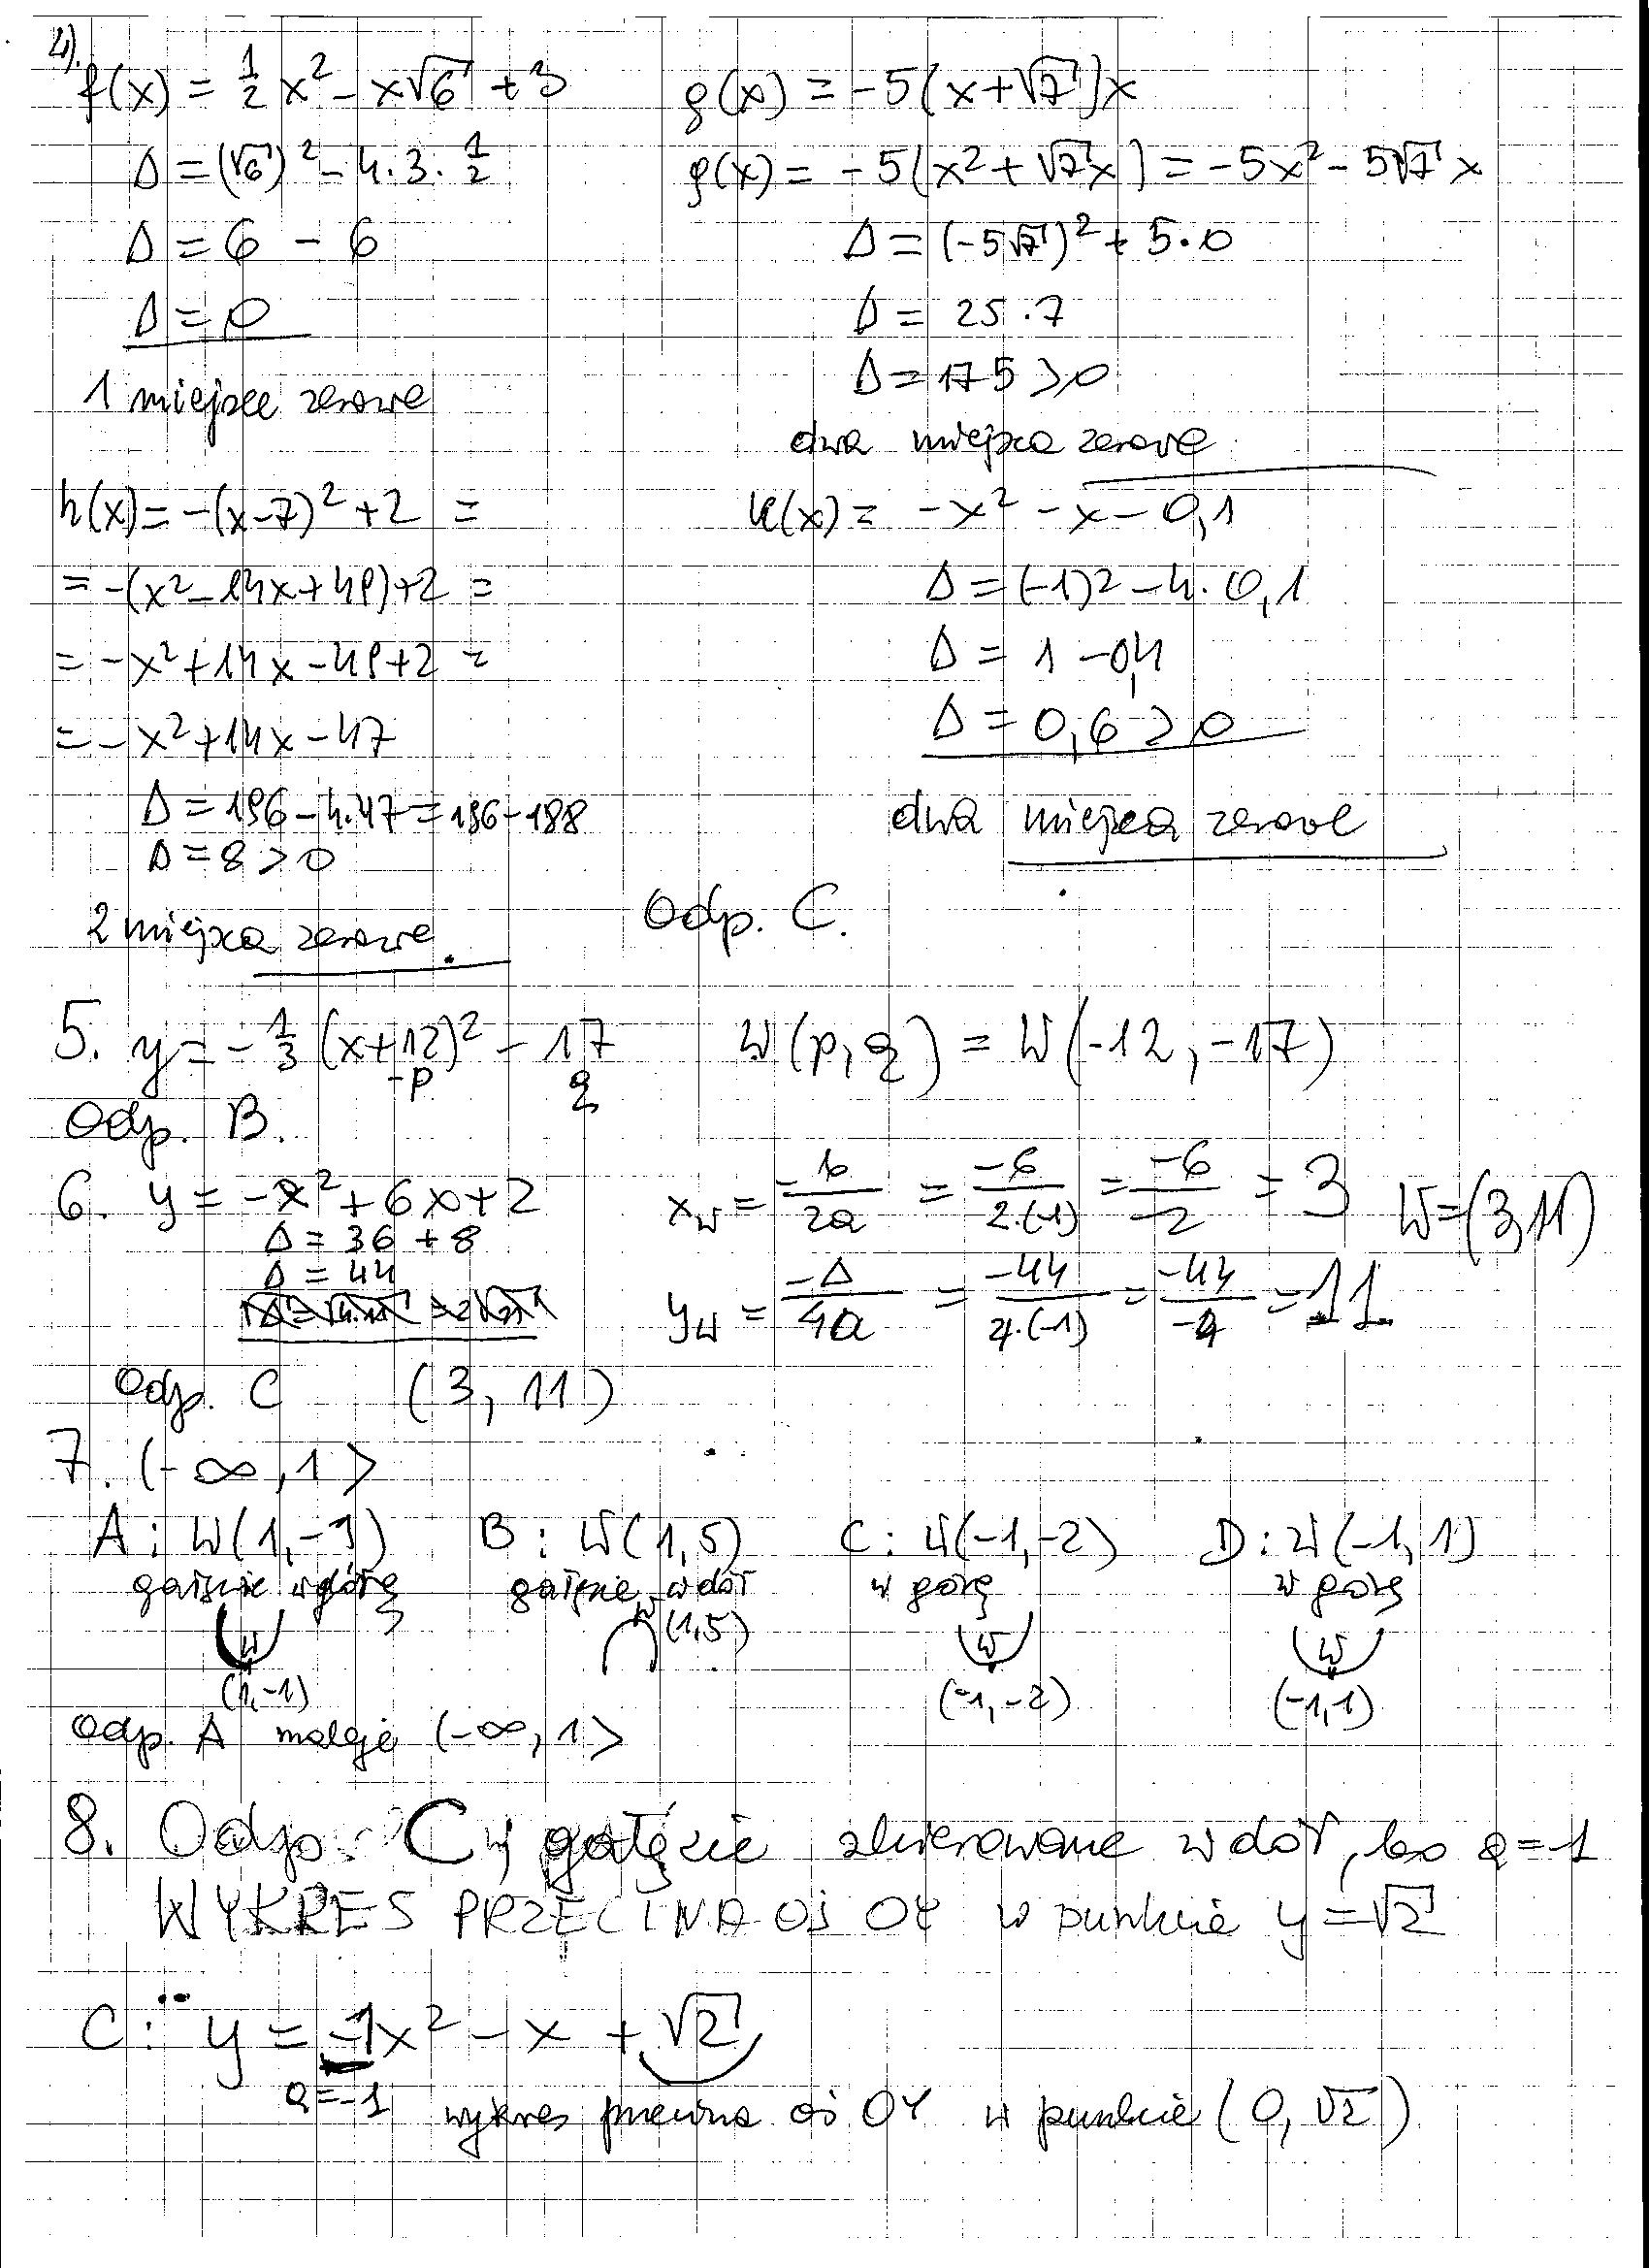 4).
f(x) = 1/2 x² - x√6 + 3
Δ = (√6)² - 4·3·1/2
Δ = 6 - 6
Δ = 0
1 miejsce zerowe
g(x) = -5(x+√7)x
g(x) = -5(x²+√7x) = -5x² - 5√7 x
Δ = (-5√7)² + 5·0
Δ = 25·7
Δ = 175 > 0
dwa miejsca zerowe
h(x) = -(x-7)² + 2 =
= -(x² - 14x + 49) + 2 =
= -x² + 14x - 49 + 2 =
= -x² + 14x - 47
Δ = 196 - 4·47 = 196 - 188
Δ = 8 > 0
2 miejsca zerowe.
k(x) = -x² - x - 0,1
Δ = (-1)² - 4·0,1
Δ = 1 - 0,4
Δ = 0,6 > 0
dwa miejsca zerowe
Odp. C.
5. y = -1/3 (x+12)² - 17 W(p,q) = W(-12, -17)
-p q
Odp. B.
6. y = -x² + 6x + 2
Δ = 36 + 8
Δ = 44
x_W = -b/2a = -6/2·(-1) = -6/-2 = 3 W=(3,11)
y_W = -Δ/4a = -44/4·(-1) = -44/-4 = 11
Odp. C (3, 11)
7. (-∞, 1>
A: W(1,-1) B: W(1,5) C: W(-1,-2) D: W(-1,1)
gałęzie w górę gałęzie w dół w górę w górę
W W (1,5) W W
(1,-1) (-1,-2) (-1,1)
Odp. A maleje (-∞, 1>
8. Odp. C, gałęzie skierowane w dół, bo a=-1
WYKRES PRZECINA oś OY w punkcie y=√2
C: y = -1x² - x + √2
a=-1 wykres przecina oś OY w punkcie (0, √2)